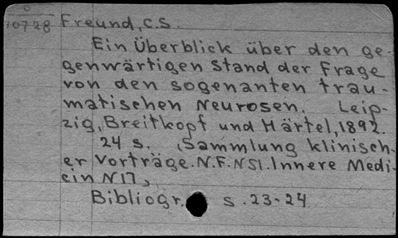 Freund, C.S.
10728
Ein Überblick über den ge-
genwärtigen Stand der Frage
von den sogenanten trau-
matischen Neurosen. Leip-
zig, Breitkopf und Härtel, 1892.
24 s. (Sammlung klinisch-
er Vorträge. N.F. N51. Innere Medi-
cin N17,
Bibliogr. s. 23-24